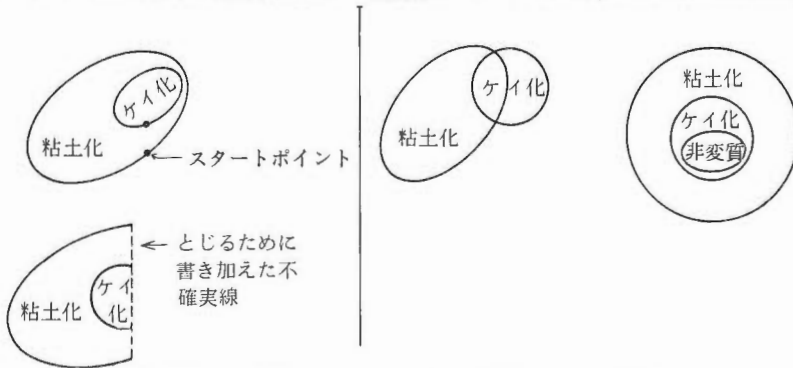 ケイ化
粘土化
スタートポイント
とじるために
書き加えた不
確実線
ケイ
化
粘土化
ケイ化
粘土化
粘土化
ケイ化
非変質